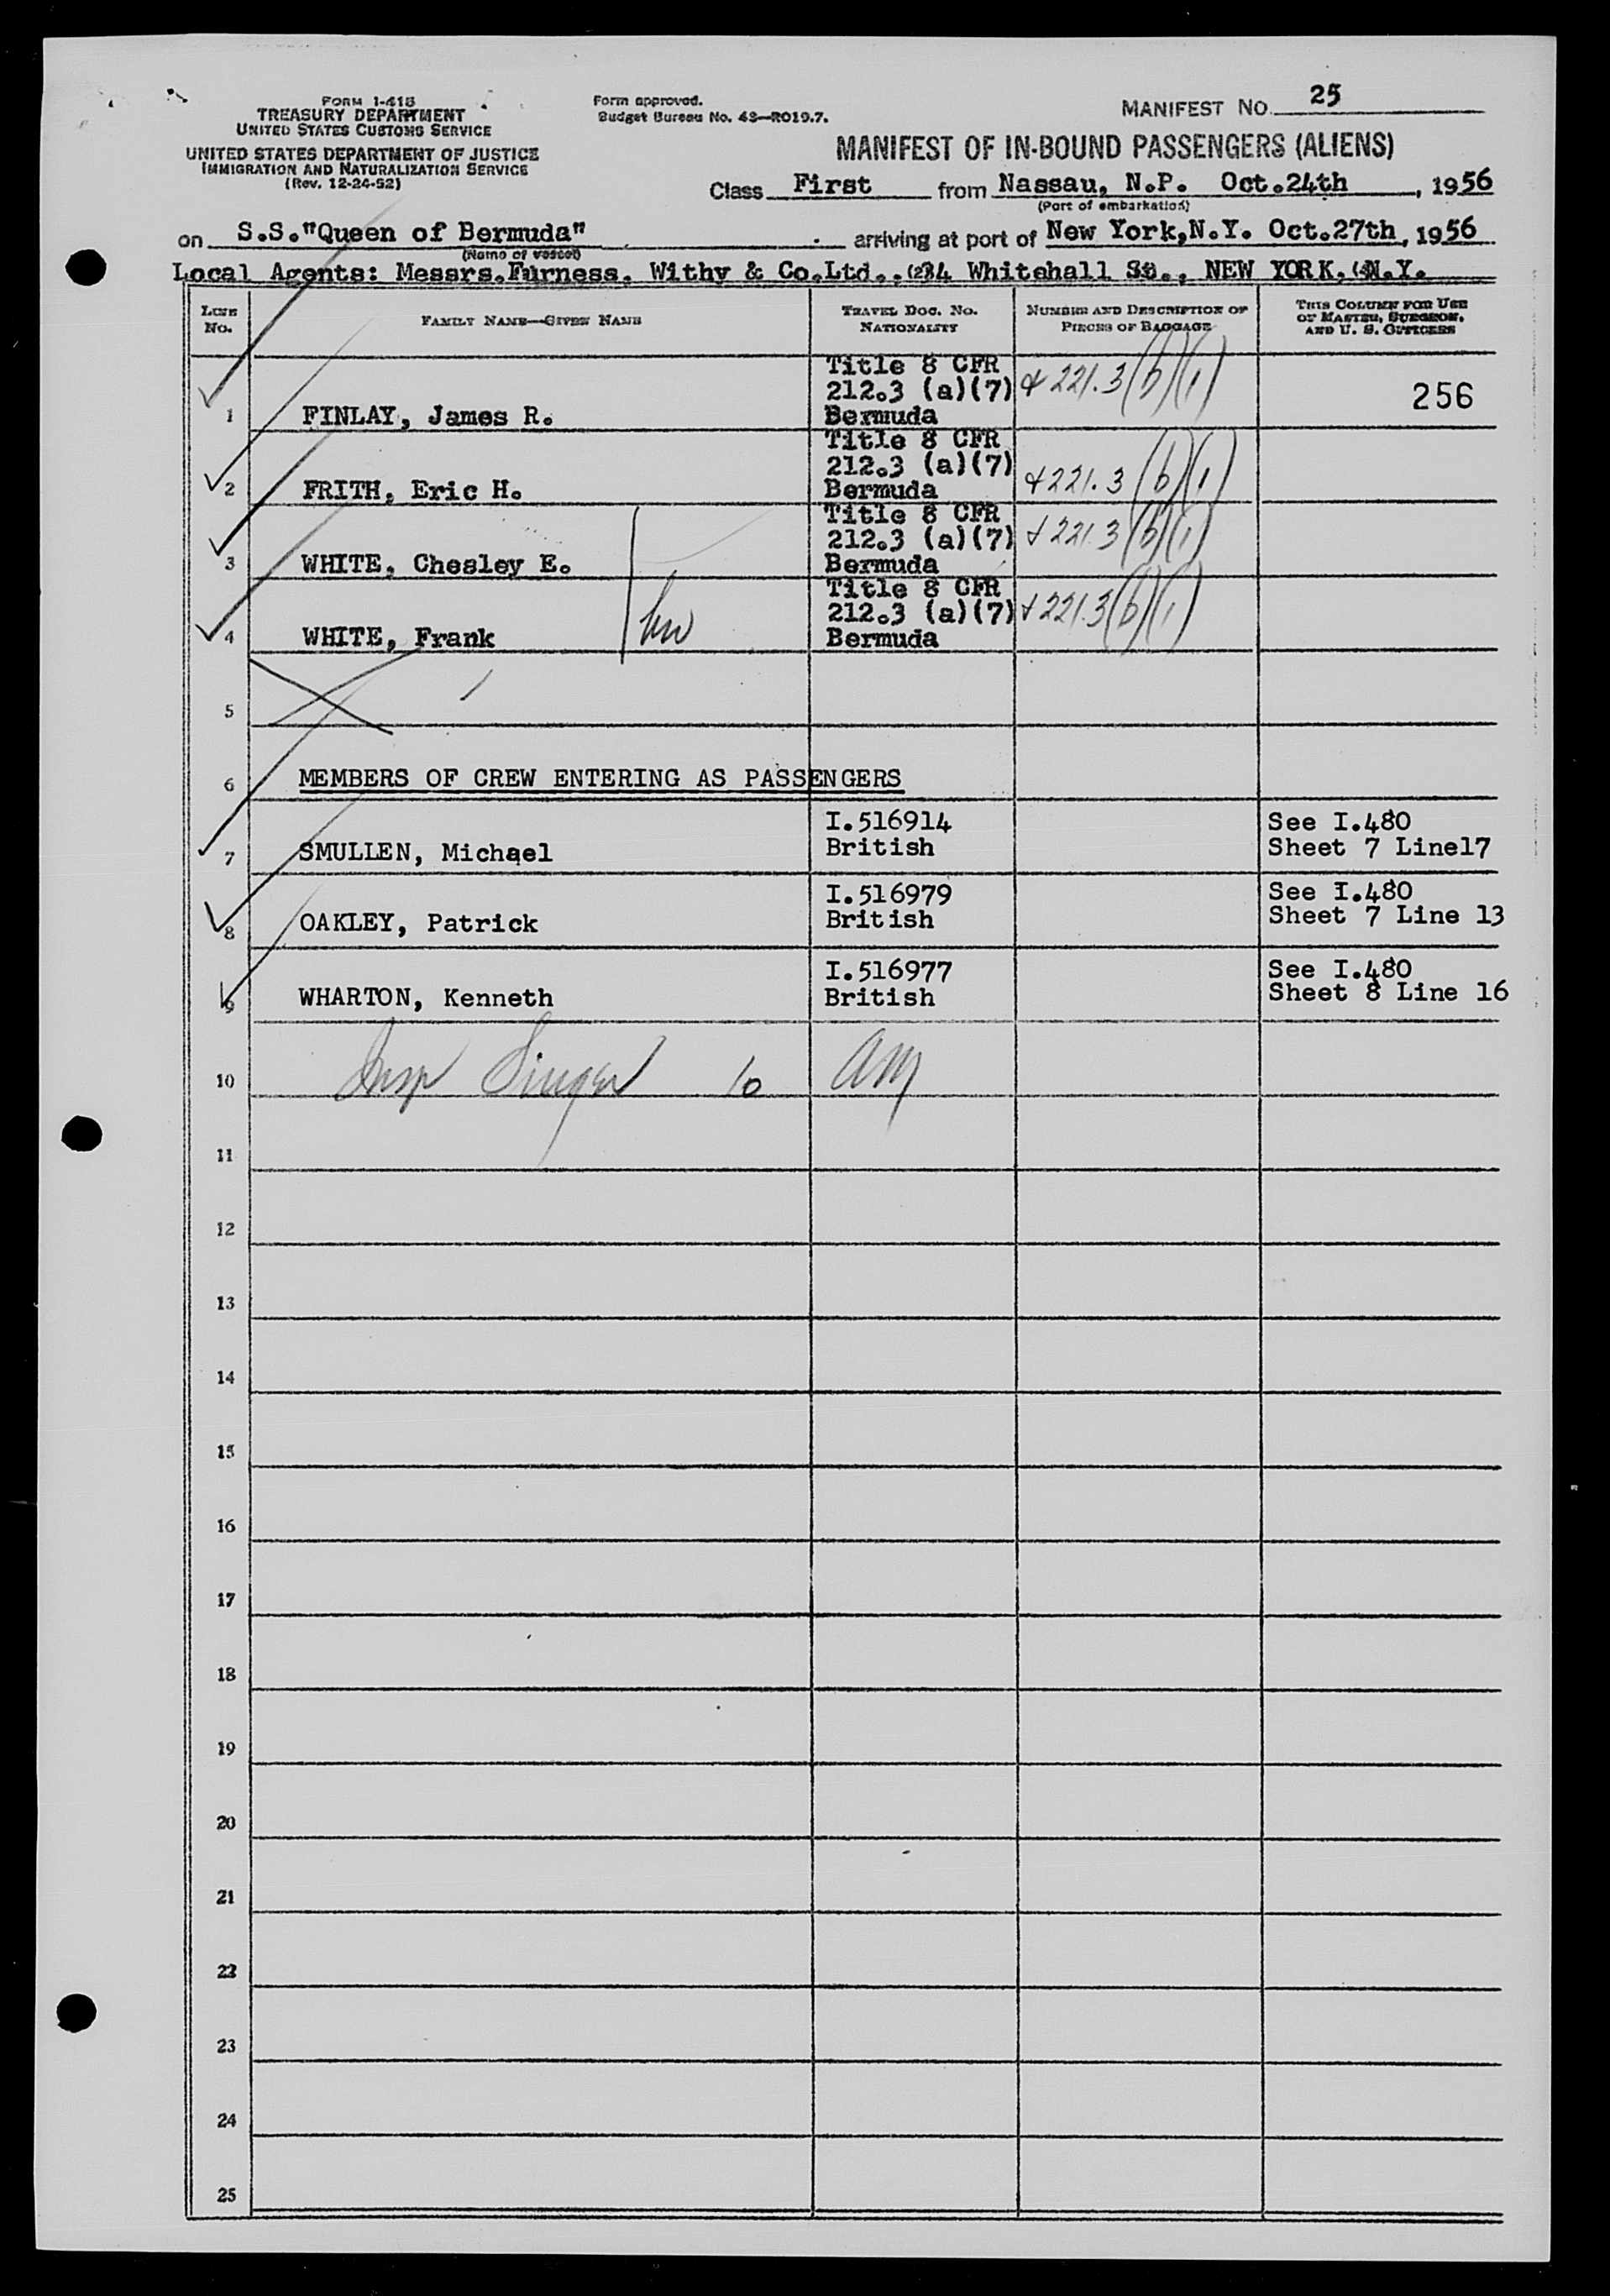 FORM I-418
TREASURY DEPARTMENT
UNITED STATES CUSTOMS SERVICE
UNITED STATES DEPARTMENT OF JUSTICE
IMMIGRATION AND NATURALIZATION SERVICE
(Rev. 12-24-52)
Form approved.
Budget Bureau No. 43—R019.7.
MANIFEST NO. 25
MANIFEST OF IN-BOUND PASSENGERS (ALIENS)
Class First from Nassau, N.P. Oct.24th, 1956
(Port of embarkation)
on S.S."Queen of Bermuda" arriving at port of New York,N.Y. Oct.27th, 1956
(Name of vessel)
Local Agents: Messrs.Furness, Withy & Co.Ltd., 34 Whitehall St., NEW YORK, N.Y.
LINE No.
FAMILY NAME—GIVEN NAME
TRAVEL DOC. NO. NATIONALITY
NUMBER AND DESCRIPTION OF PIECES OF BAGGAGE
THIS COLUMN FOR USE OF MASTER, SURGEON, AND U. S. OFFICERS
Title 8 CFR
212.3 (a)(7) & 221.3 (b)(1) 256
1 FINLAY, James R. Bermuda
Title 8 CFR
212.3 (a)(7) & 221.3 (b)(1)
2 FRITH, Eric H. Bermuda
Title 8 CFR
212.3 (a)(7) & 221.3 (b)(1)
3 WHITE, Chesley E. Bermuda
Title 8 CFR
212.3 (a)(7) & 221.3 (b)(1)
4 WHITE, Frank Bermuda
5
6 MEMBERS OF CREW ENTERING AS PASSENGERS
I.516914 See I.480
7 SMULLEN, Michael British Sheet 7 Line17
I.516979 See I.480
8 OAKLEY, Patrick British Sheet 7 Line 13
I.516977 See I.480
9 WHARTON, Kenneth British Sheet 8 Line 16
10 Insp Singer 10 am
11
12
13
14
15
16
17
18
19
20
21
22
23
24
25